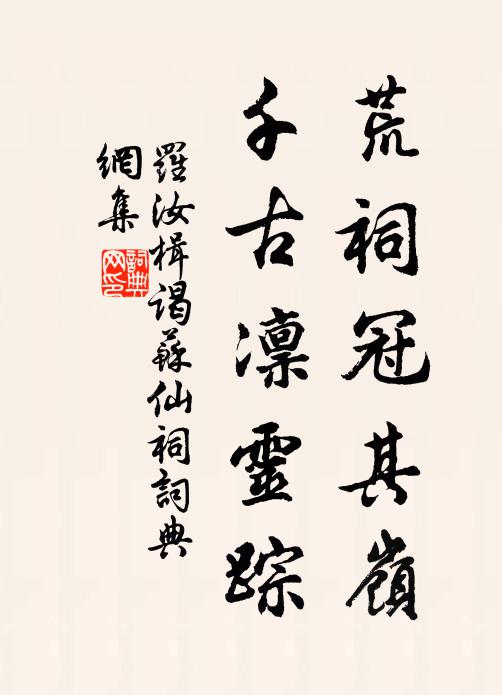 荒祠冠其嶺
千古凜靈踪
羅汝楫謁蘇仙祠詞典
網集
詞典
网印